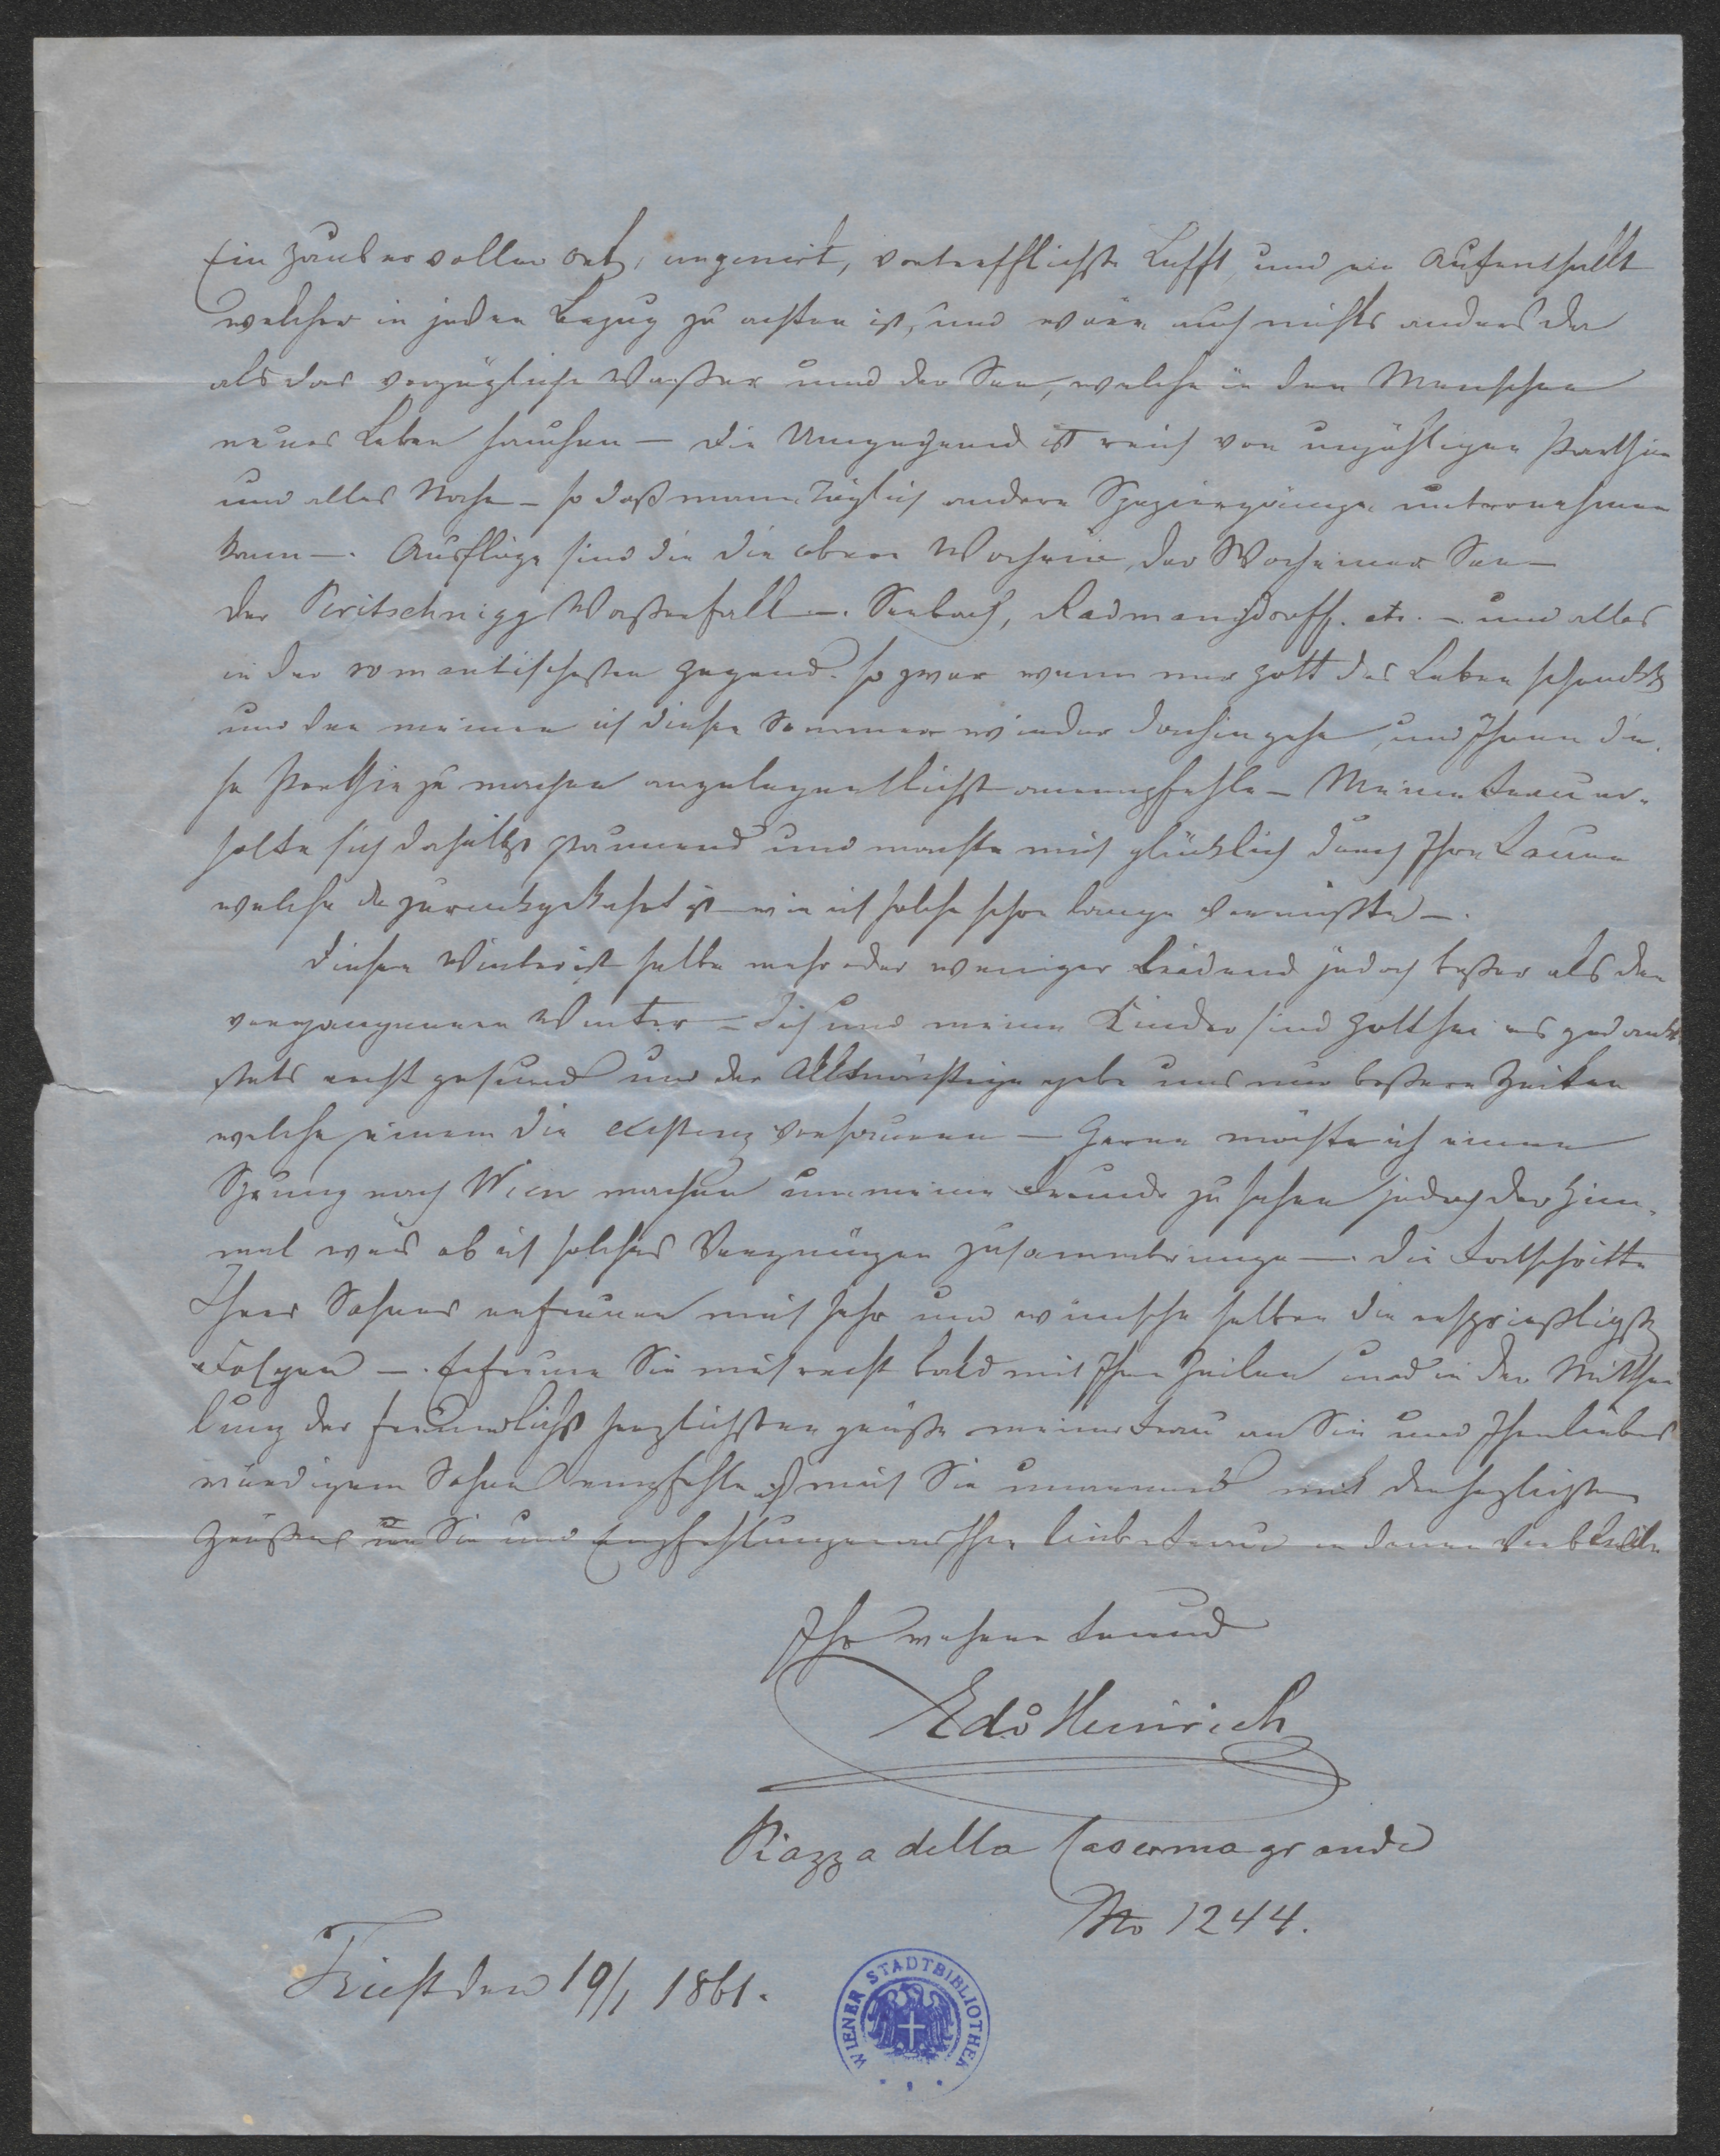 Ein zaubervoller Ort, ungenirt, vortrefflichste Lufft, und ein Aufenthallt
welcher in jeden Bezug zu achten ist, und wäre auch nichts anders da
als das vorzügliche Waßer und der See, welche in den Menschen
neues Leben hauchen – die Umgegend ist reich von unzähligen Parthien
und alles Nahe – so daß mann täglich andere Spaziergänge unternehmen
kann –. Ausflüge sind die die obere Wochein, der Wocheiner See –
der Peritschnigg Waßerfall –. Seebach, Radmansdorff. etc. – und alles
in der romantischesten Gegend. so zwar wenn mir Gott das Leben schenckt
und den meinen ich diesen Sommer wieder dahin gehe, und Ihnen die-
se Parthie zu machen angelegentlichst anempfehle – Meine Frau er-
holte sich daselbst staunend und machte mich glücklich durch Ihre Laune
welche da zurückgekehrt ist wie ich solche schon lange vermißte –.
Diesen Winter ist selbe mehr oder weniger leidend jedoch beßer als den
vergangenen Winter – Ich und meine Kinder sind Gott sei es gedankt
stets recht gesund und der Allmächtige gebe uns nur beßere Zeiten
welche einem die Existenz – Gerne möchte ich einen
Sprung nach Wien machen um meine Freunde zu sehen jedoch der Him-
mel weis ob ich solches Vergnügen zusammbringe –. Die Fortschritte
Ihres Sohnes erfreuen mich sehr und wünsche selben die ersprießligst
Folgen –. Erfreuen Sie mich recht bald mit Ihren Zeilen und in der Mitthei
lung der freundlichst herzlichsten grüße meiner Frau an Sie und Ihren liebens
würdigem Sohne empfehle ich mich Sie umarmend mit den herzlichsten
Grüßen an Sie und Empfehlungen an Ihre liebe Frau in denen Verbleibe
Ihr wahrer Freund
Edo Heinrich
Piazza della Caserma grande
No 1244.
Triest den 19/1 1861.
WIENER STADTBIBLIOTHEK